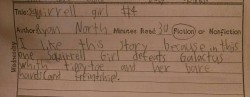 Title: Squirrell girl #4
Author: Ryan North Minutes Read 30 Fiction or Nonfiction
Wednesday
I like this story because in this
one Squirrel Girl defeats Galactus
with tippy-toe and her bare
hands and friendship!